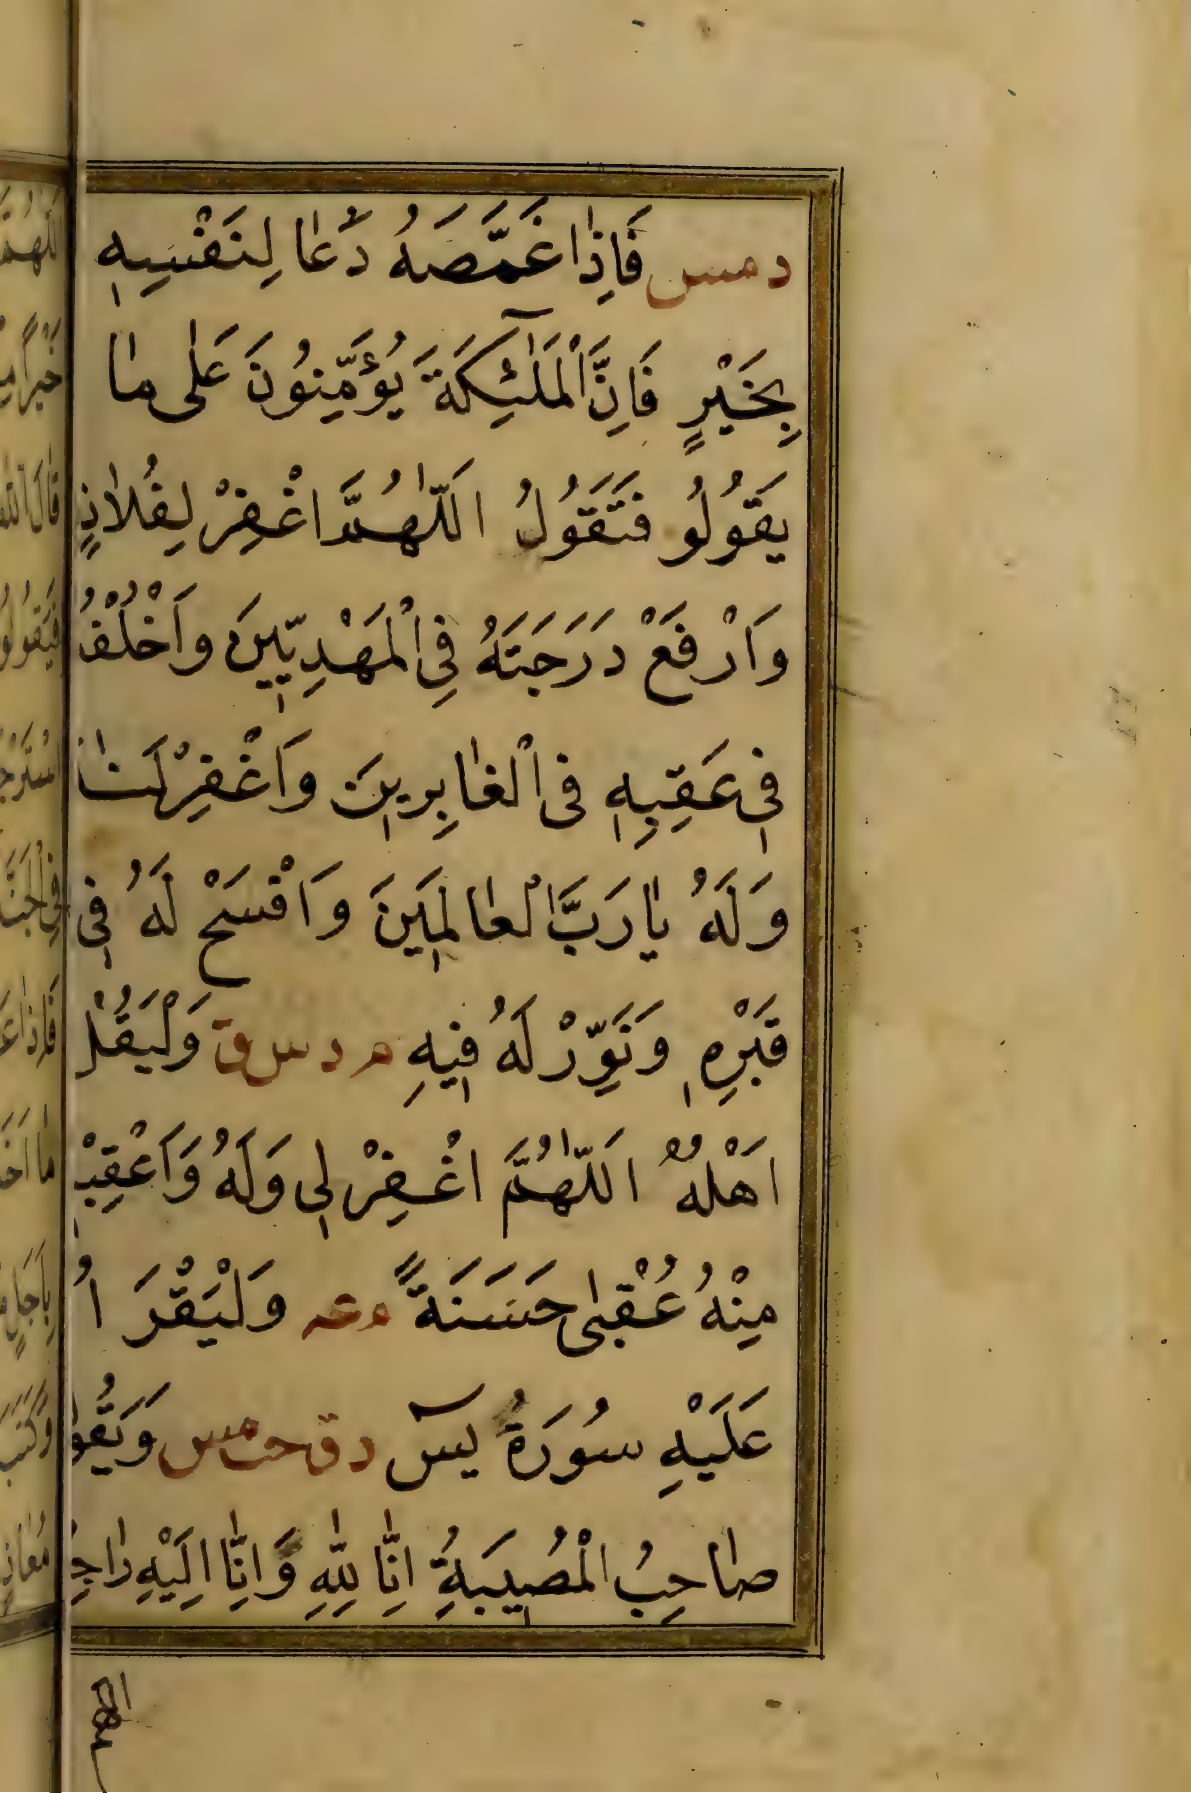 د مس فَاِذَا غَمَّصَهُ دَعَا لِنَفْسِهِ
بِخَيْرٍ فَاِنَّ الْمَلٰٓئِكَةَ يُؤَمِّنُونَ عَلٰى مَا
يَقُولُو فَتَقُولُ اَللّٰهُمَّ اغْفِرْ لِفُلَانٍ
وَارْفَعْ دَرَجَتَهُ فِى الْمَهْدِيّٖينَ وَاَخْلُفْهُ
فٖى عَقِبِهٖ فِى الْغَابِرٖينَ وَاغْفِرْ لَنَا
وَلَهُ يَا رَبَّ الْعَالَمٖينَ وَافْسَحْ لَهُ فٖى
قَبْرِهٖ وَنَوِّرْ لَهُ فٖيهِ م د س ق وَلْيَقُلْ
اَهْلُهُ اَللّٰهُمَّ اغْفِرْ لٖى وَلَهُ وَاَعْقِبْنٖى
مِنْهُ عُقْبٰى حَسَنَةً م عه وَلْيَقْرَ اُ
عَلَيْهِ سُورَةُ يٓس د ق حب مس وَيَقُو
صَاحِبُ الْمُصٖيبَةِ اِنَّا لِلّٰهِ وَاِنَّا اِلَيْهِ رَاجِ
اللهم